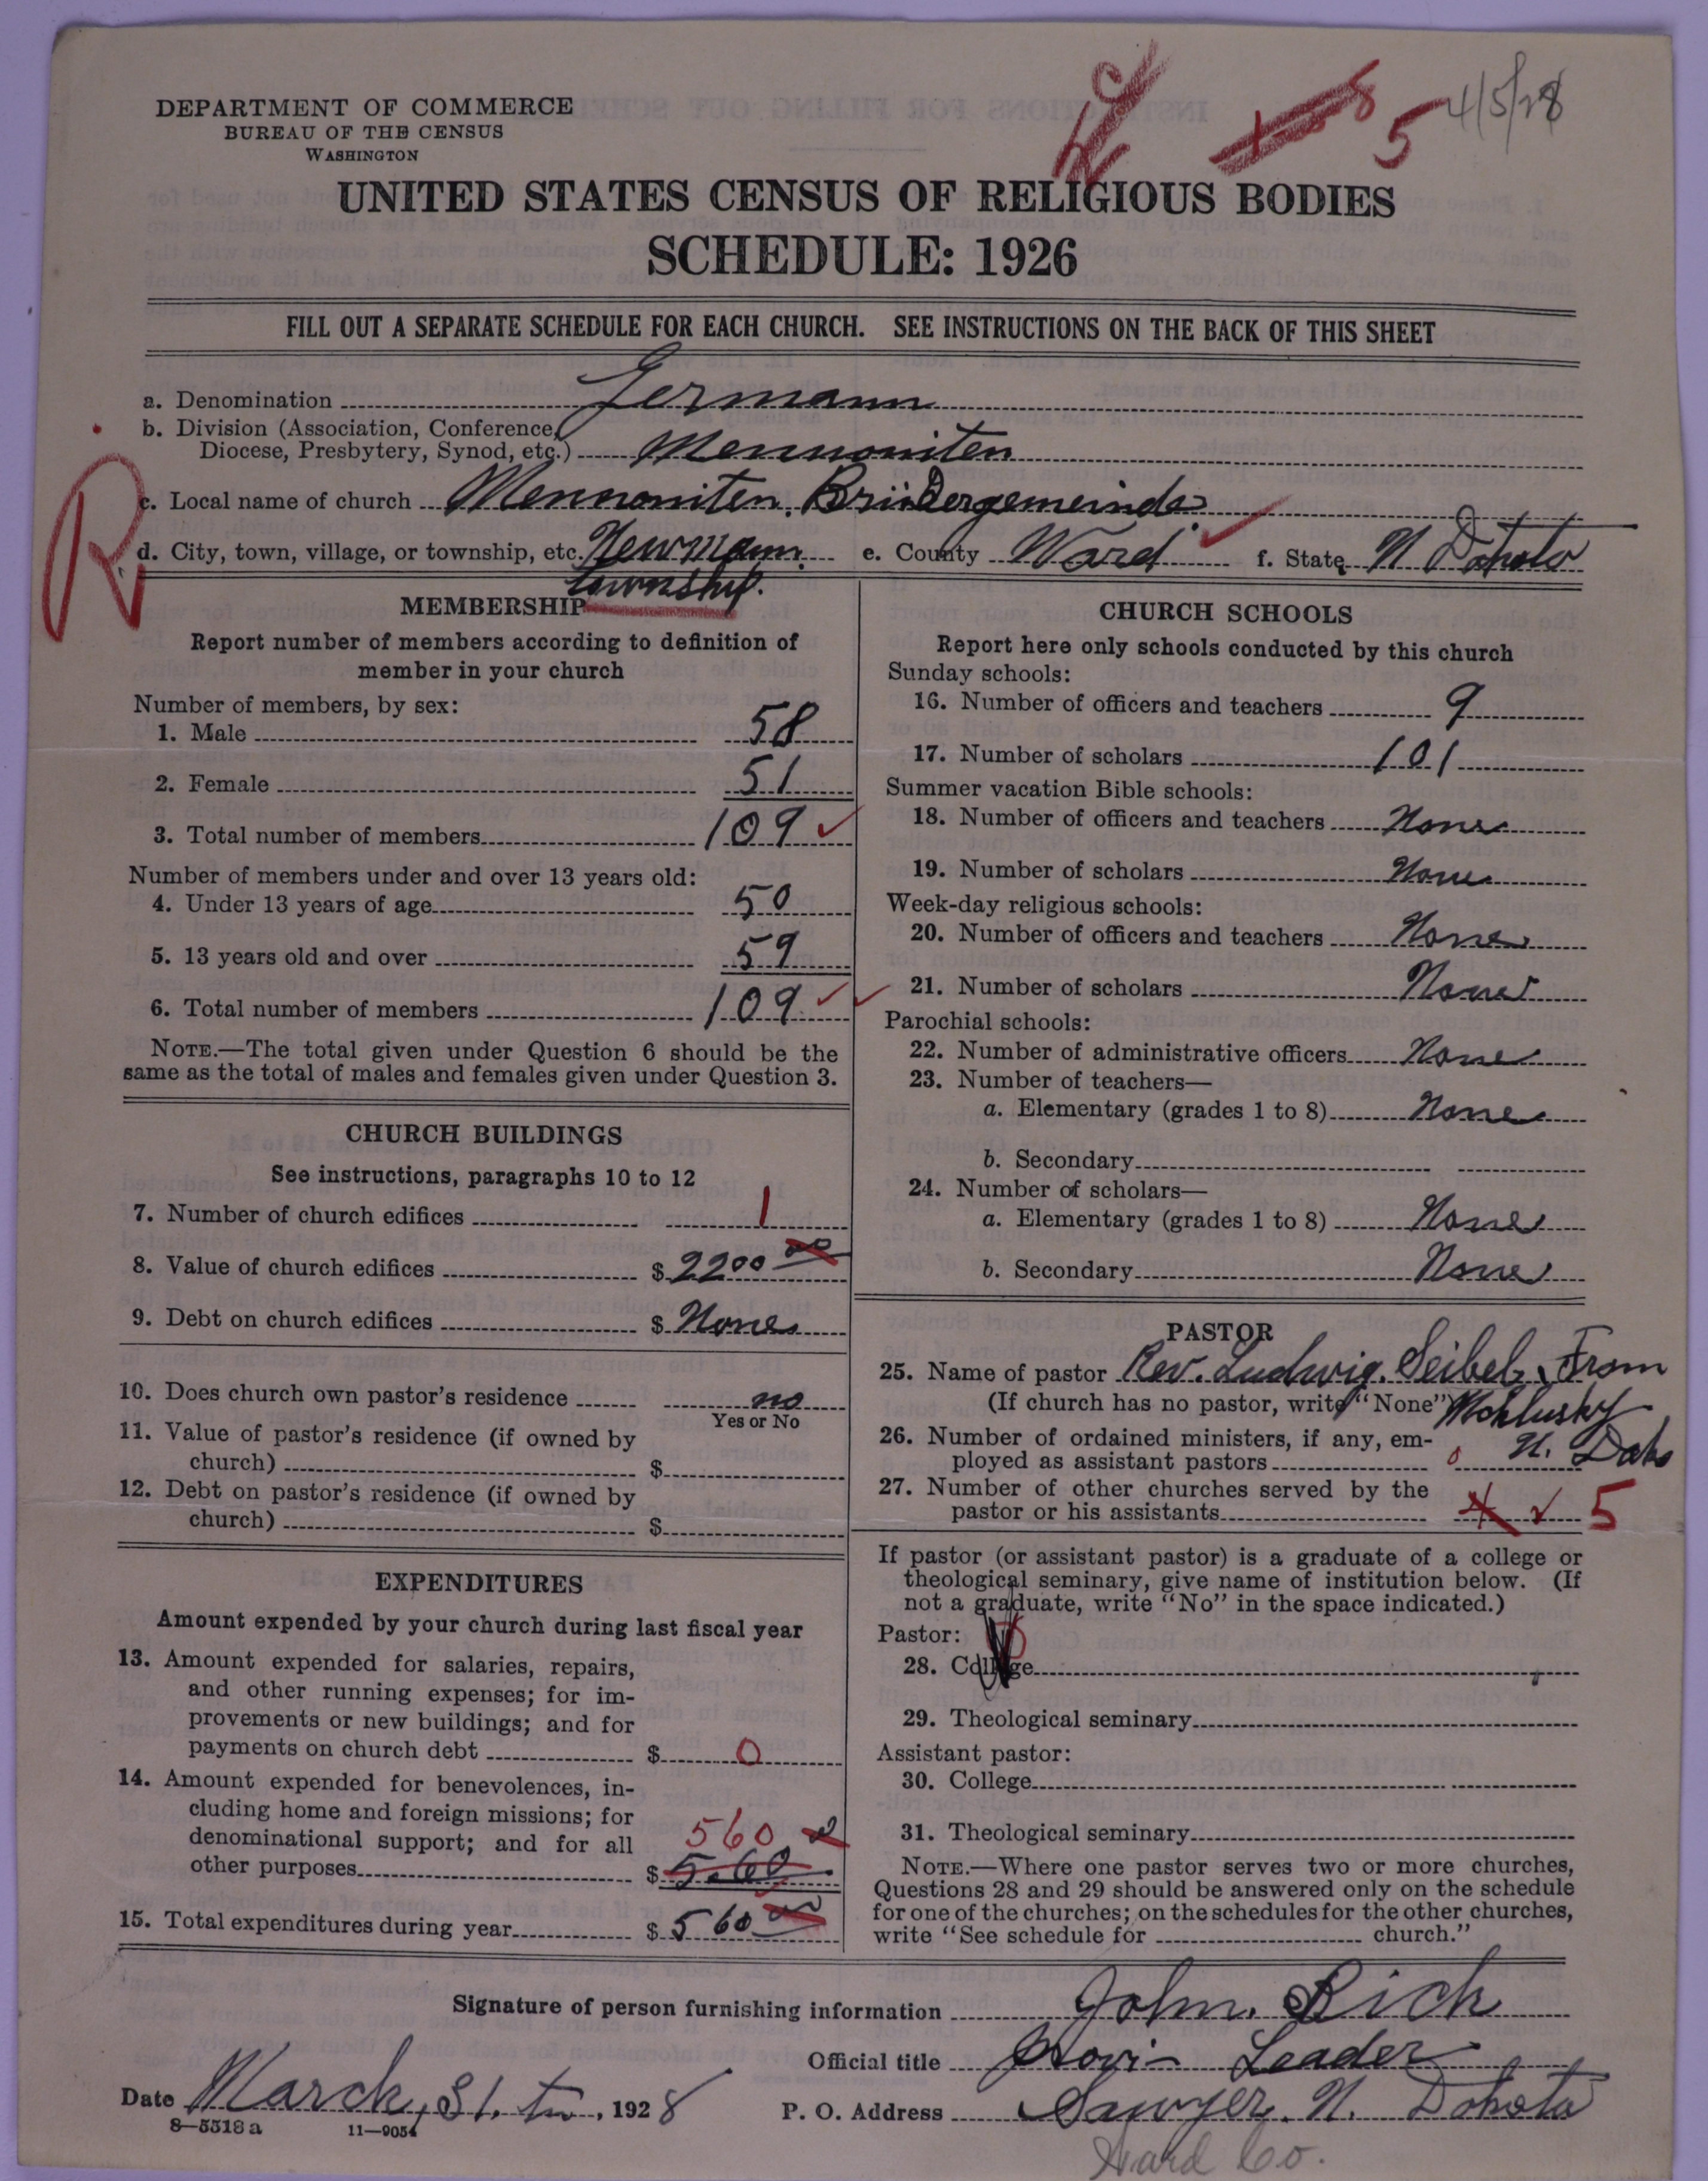 4/5/28
5
DEPARTMENT OF COMMERCE
BUREAU OF THE CENSUS
WASHINGTON
UNITED STATES CENSUS OF RELIGIOUS BODIES
SCHEDULE: 1926
FILL OUT A SEPARATE SCHEDULE FOR EACH CHURCH. SEE INSTRUCTIONS ON THE BACK OF THIS SHEET
a. Denomination Germann
b. Division (Association, Conference,
Diocese, Presbytery, Synod, etc.) Mennoniten
R
c. Local name of church Mennoniten. Brüdergemeinde
d. City, town, village, or township, etc. Newmann. e. County Ward f. State N Dakota
township.
MEMBERSHIP
Report number of members according to definition of
member in your church
Number of members, by sex:
1. Male 58
2. Female 51
3. Total number of members 109
Number of members under and over 13 years old:
4. Under 13 years of age 50
5. 13 years old and over 59
6. Total number of members 109
NOTE.—The total given under Question 6 should be the
same as the total of males and females given under Question 3.
CHURCH BUILDINGS
See instructions, paragraphs 10 to 12
7. Number of church edifices 1
8. Value of church edifices $ 2200 00
9. Debt on church edifices $ None
10. Does church own pastor's residence no
Yes or No
11. Value of pastor's residence (if owned by
church) $
12. Debt on pastor's residence (if owned by
church) $
EXPENDITURES
Amount expended by your church during last fiscal year
13. Amount expended for salaries, repairs,
and other running expenses; for im-
provements or new buildings; and for
payments on church debt $ 0
14. Amount expended for benevolences, in-
cluding home and foreign missions; for
denominational support; and for all
560
other purposes $ 5.60
15. Total expenditures during year $ 560 00
CHURCH SCHOOLS
Report here only schools conducted by this church
Sunday schools:
16. Number of officers and teachers 9
17. Number of scholars 101
Summer vacation Bible schools:
18. Number of officers and teachers None
19. Number of scholars None
Week-day religious schools:
20. Number of officers and teachers None
21. Number of scholars None
Parochial schools:
22. Number of administrative officers None
23. Number of teachers—
a. Elementary (grades 1 to 8) None
b. Secondary
24. Number of scholars—
a. Elementary (grades 1 to 8) None
b. Secondary None
PASTOR
25. Name of pastor Rev. Ludwig. Seibel, From
(If church has no pastor, write "None") Mcklusky
26. Number of ordained ministers, if any, em- N. Dak
ployed as assistant pastors 0
27. Number of other churches served by the
pastor or his assistants 5
If pastor (or assistant pastor) is a graduate of a college or
theological seminary, give name of institution below. (If
not a graduate, write "No" in the space indicated.)
Pastor:
28. College
29. Theological seminary
Assistant pastor:
30. College
31. Theological seminary
NOTE.—Where one pastor serves two or more churches,
Questions 28 and 29 should be answered only on the schedule
for one of the churches; on the schedules for the other churches,
write "See schedule for church."
Signature of person furnishing information John. Rich
Official title Leader
Date March, 31. 1928 P. O. Address Sawyer. N. Dakota
8—5518 a 11—9054
Ward Co.